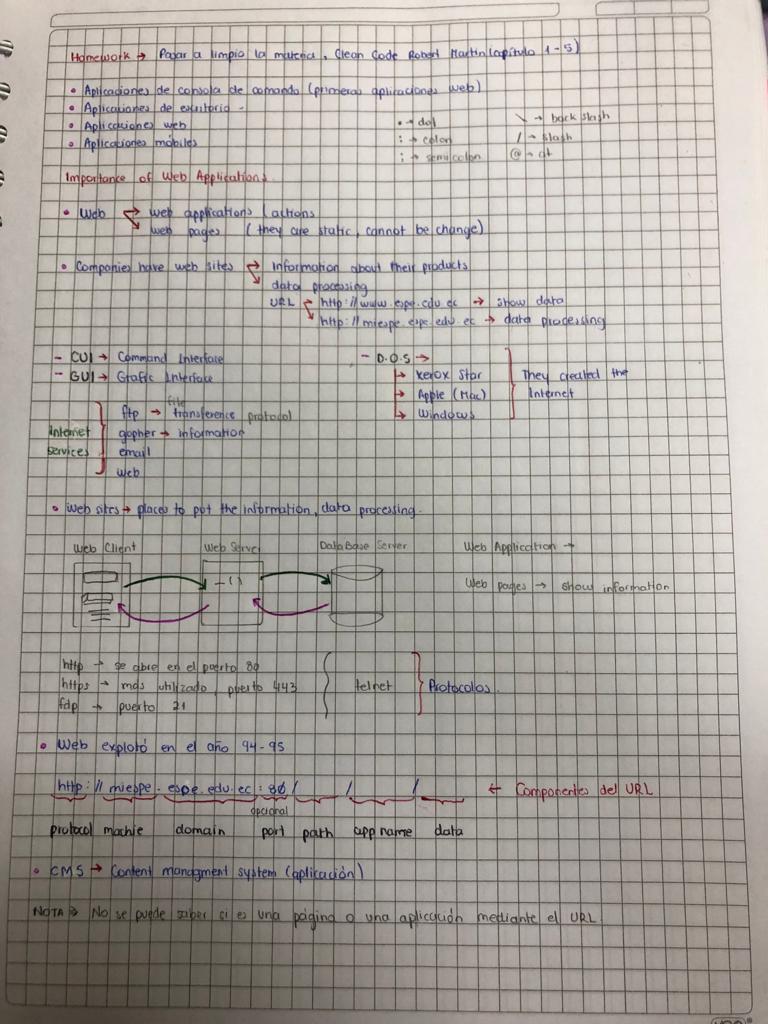 Homework → Pasar a limpio la materia, Clean Code Robert Martin (capítulo 1-5)
• Aplicaciones de consola de comando (primeras aplicaciones web)
• Aplicaciones de escritorio -
• Aplicaciones web
• Aplicaciones móbiles
• → dot
: → colon
; → semicolon
\ → back slash
/ → slash
@ → at
Importance of Web Applications.
• Web → web applications (actions
→ web pages (they are static, cannot be change)
• Companies have web sites → Information about their products
→ data processing
URL → http://www.espe.edu.ec → show data
→ http://miespe.espe.edu.ec → data processing
- CUI → Command Interface
- GUI → Grafic Interface
- D.O.S →
→ Xerox Star
→ Apple (Mac)
→ Windows
They created the
Internet
Internet
services
file
ftp → transference protocol
gopher → information
email
web
• Web sites → places to put the information, data processing.
Web Client Web Server DataBase Server
Web Application →
Web pages → show information
http → se abre en el puerto 80
https → más utilizado, puerto 443
fdp → puerto 21
telnet
Protocolos.
• Web explotó en el año 94-95
http://miespe.espe.edu.ec:80/ / / ← Componentes del URL
opcional
protocol machie domain port path app name data
• CMS → Content managment system (aplicación)
NOTA → No se puede saber si es una página o una aplicación mediante el URL.